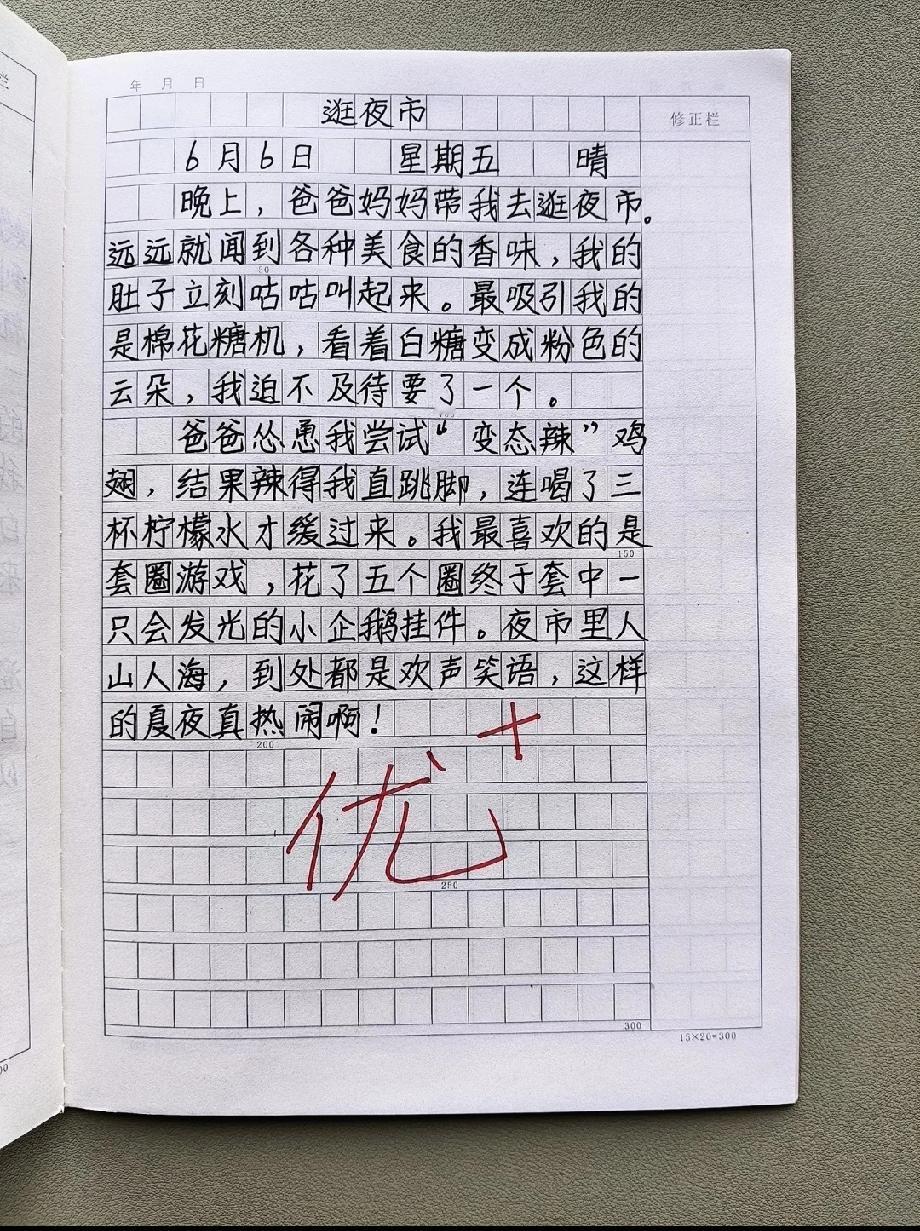 年 月 日
逛夜市
修正栏
6月6日 星期五 晴
晚上，爸爸妈妈带我去逛夜市。
远远就闻到各种美食的香味，我的
肚子立刻咕咕叫起来。最吸引我的
是棉花糖机，看着白糖变成粉色的
云朵，我迫不及待要了一个。
爸爸怂恿我尝试“变态辣”鸡
翅，结果辣得我直跳脚，连喝了三
杯柠檬水才缓过来。我最喜欢的是
套圈游戏，花了五个圈终于套中一
只会发光的小企鹅挂件。夜市里人
山人海，到处都是欢声笑语，这样
的夏夜真热闹啊！
200
优+
300